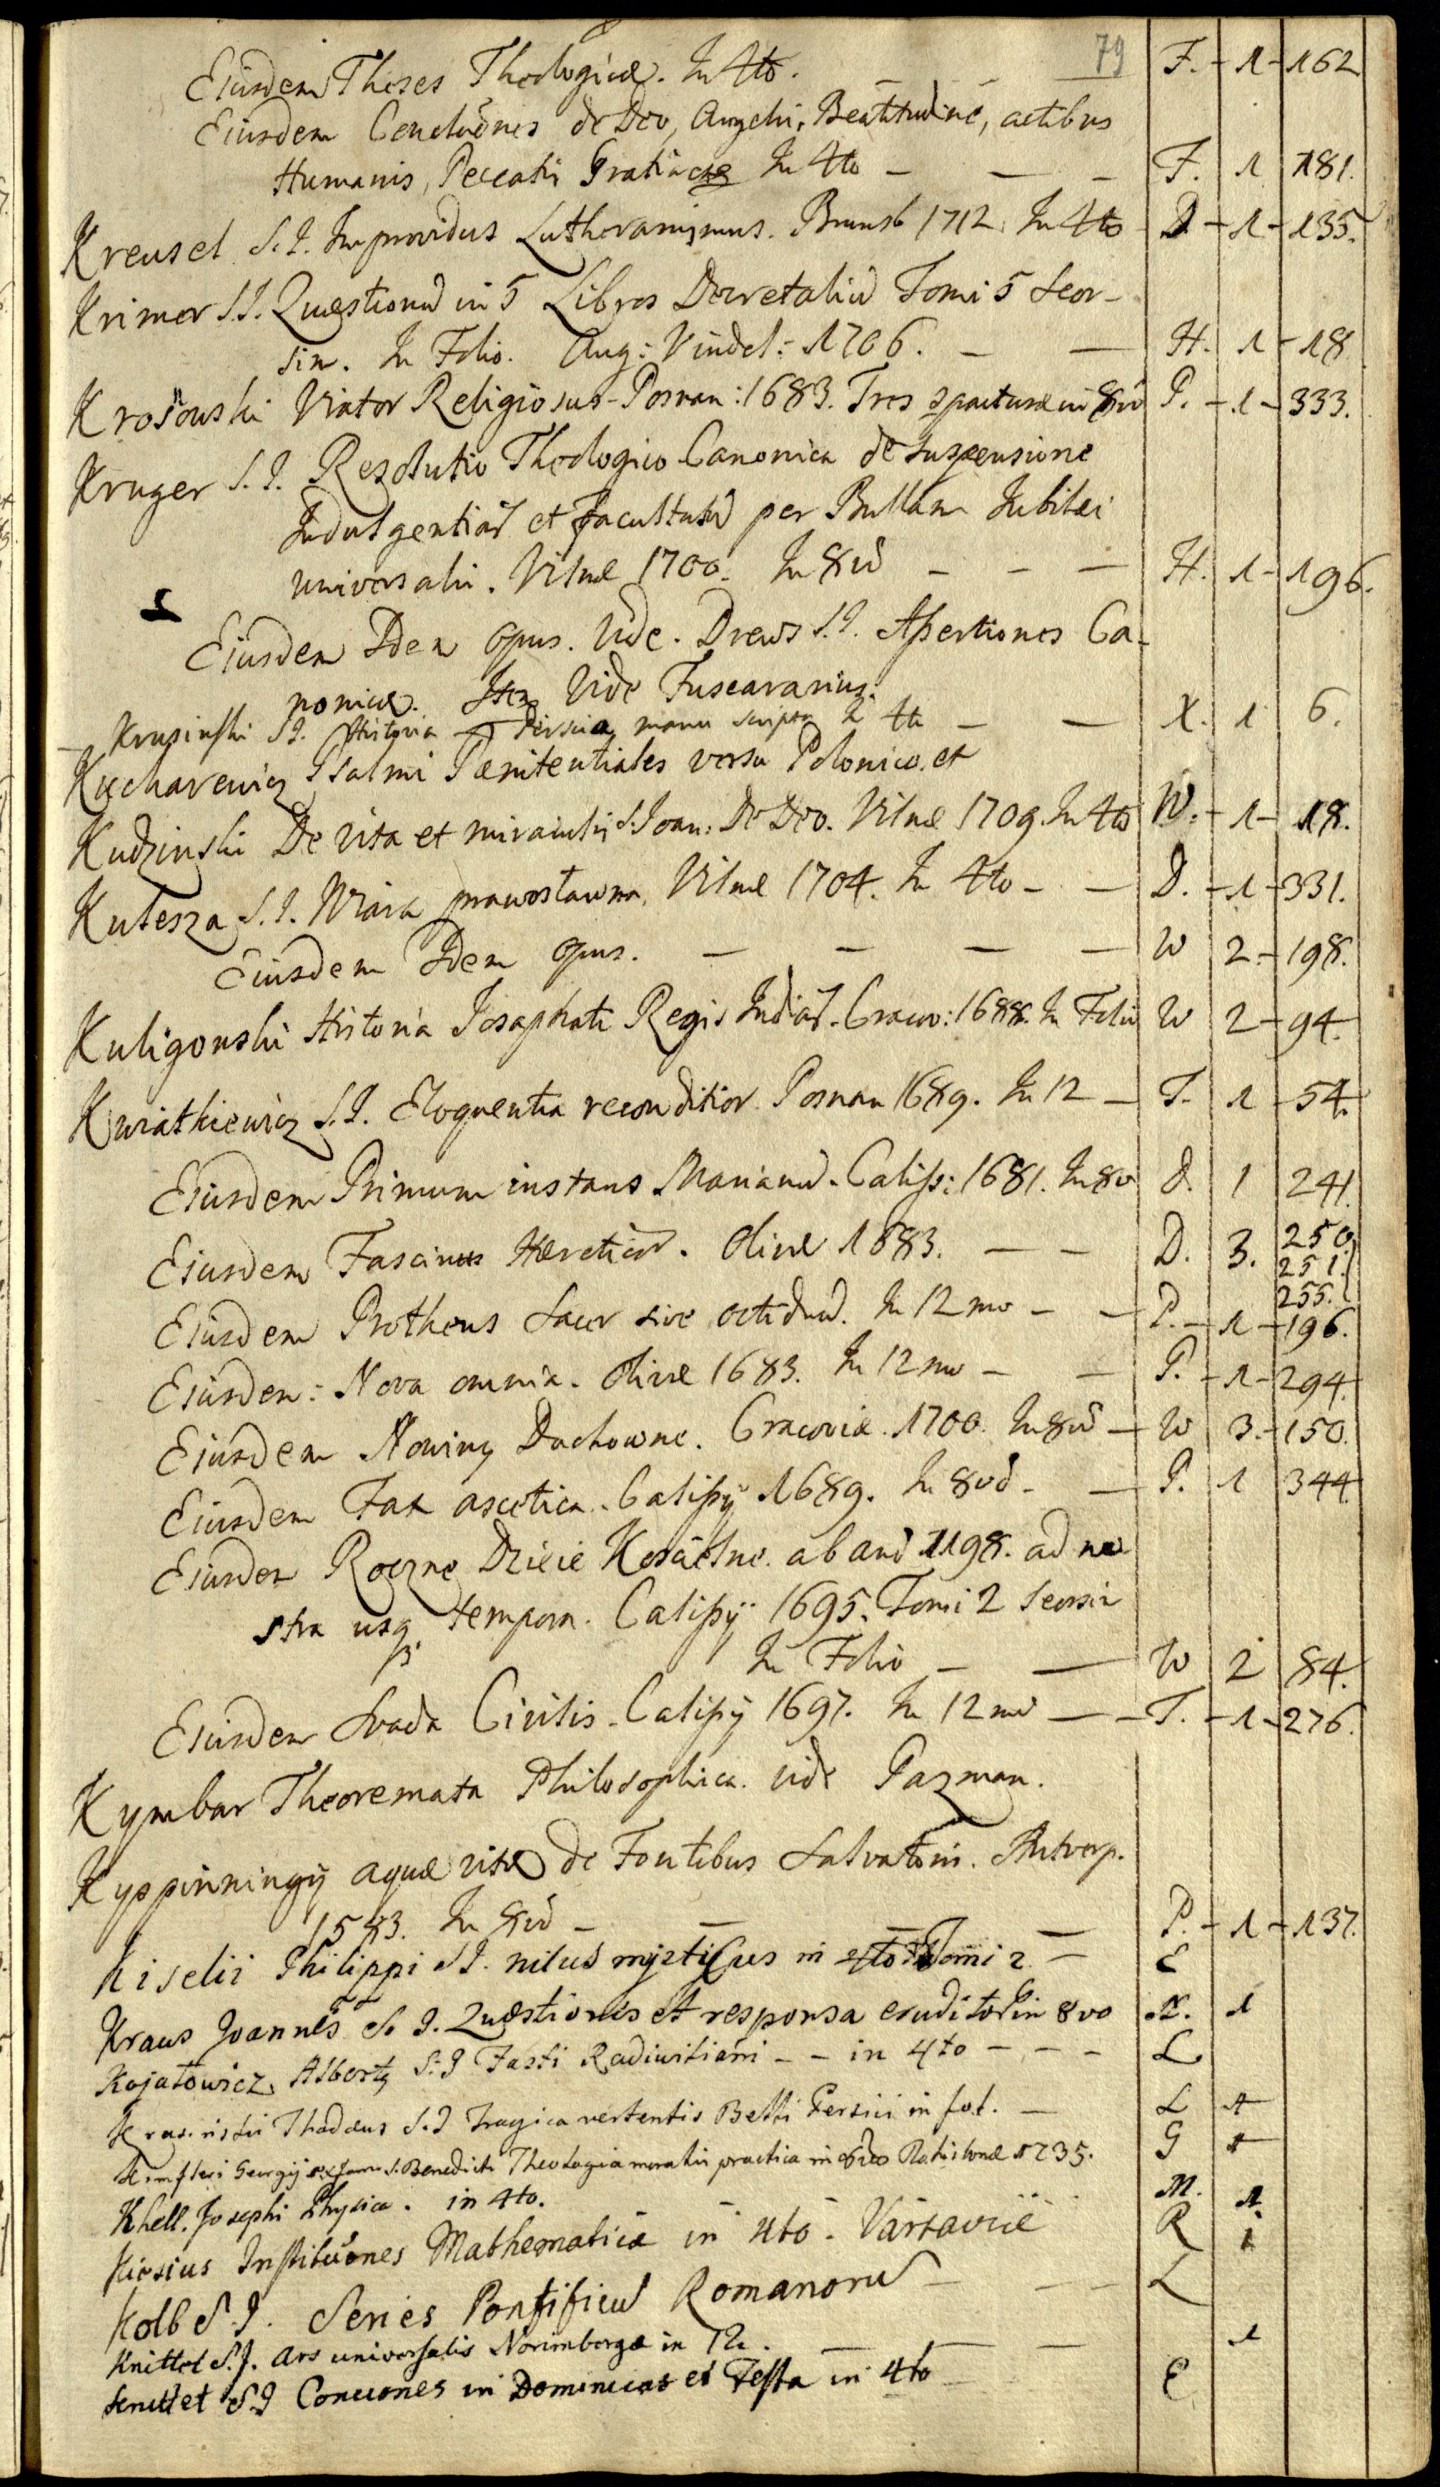 79
Eiusdem Theses Theologicæ. In 4to. F. - 1 - 162
Eiusdem Conclusiōnes de Deo, Angelis, Beatitudine, actibus
Humanis, Peccatis Gratiaque In 4to — — — F. 1 181.
Kreusel S.I. Improvidus Lutheranismus. Brunsb 1712. In 4to D - 1 - 135.
Krimer S.I. Quæstionū in 5 Libros Decretaliū Tomi 5 Seor-
sim. In Folio. Aug: Vindel: 1706. — — H. 1 - 18
Krosnowski Viator Religiosus Posnan: 1683. Tres partes in 8vo P. - 1 - 333.
Kruger S.I. Resolutio Theologico Canonica de suspensione
Indulgentiar̃ et Facultatū per Bullam Iubilæi
universalis. Vilnæ 1700. In 8vō — — — H. 1 - 196.
Eiusdem Idem opus. Vide. Drews S.I. Assertiones Ca-
nonicæ. Item Vide Fuscararius.
Krusinski SI. Historia Persica manu scripta in 4to — — X. 1 6.
Kucharewicz Psalmi Pænitentiales versu Polonico et
Kudzinski De Vita et miraculis S. Ioan: De Deo. Vilnæ 1709. In 4to W. - 1 - 18.
Kulesza S.I. Wiara prawosławna. Vilnæ 1704. In 4to - — D. - 1 - 331.
Eiusdem Idem opus. — — — — W 2 - 198.
Kuligowski Historia Iosaphati Regis Indiar̃. Cracov: 1688. In Folio W 2 - 94.
Kwiatkiewicz S.I. Eloquentia reconditior Posnan 1689. In 12 — T. 1 - 54.
Eiusdem Primum instans Marianū. Caliss: 1681. In 8vo D. 1 241.
Eiusdem Fascinus Hæreticor̃. Olivæ 1683. — — D. 3. 250.
251.
255.
Eiusdem Protheus Sacer sive octiduū. In 12mo — — P. - 1 - 196.
Eiusdem: Nova omnia. Olivæ 1683. In 12mo — — P. - 1 - 294.
Eiusdem Nowiny Duchowne. Cracoviæ. 1700. In 8vō — W 3. - 150.
Eiusdem Fax ascetica. Calissÿ 1689. In 8vō. — P. 1 344
Eiusdem Roczne Dzieie Kościelne. ab anō 1198. ad no
stra usq. tempora. Calissÿ 1695. Tomi 2 Seorsim
In Folio — — W 2 84.
Eiusdem Suada Civilis. Calissÿ 1697. In 12mo — — T. - 1 - 276.
Kymbar Theoremata Philosophica. vide Pazman.
Kyspinningÿ aquæ vitæ de Fontibus Salvatoris. Antverp.
1583. In 8vō — — — — P. - 1 - 137.
Kiselii Philippi S.I. nilus mysticus in 4to Tomi 2 — E
Kraus Joannes S.I. Quæstiones et responsa eruditor̃ in 8vo N. 1
Kojałowicz Alberty S.I Fasti Radiviliani - - in 4to - - - L
Krusinski Thadæus S.I Tragica vertentis Belli Persici in fol. — L 1
Georgÿ S. Benedicti Theologia moralis practica in 8vo Ratisbonæ 1735. G 1
Khell. Josephi Physica. in 4to. M. 1
Kiesius Institūones Mathematicæ in 4to. Varsaviæ R 1
Kolb S.I. Series Pontificū Romanorū — — — L
Knittel S.J. Ars universalis Norimbergæ in 12. — — — 1
Knittel S.I Conciones in Dominicas et Festa in 4to E